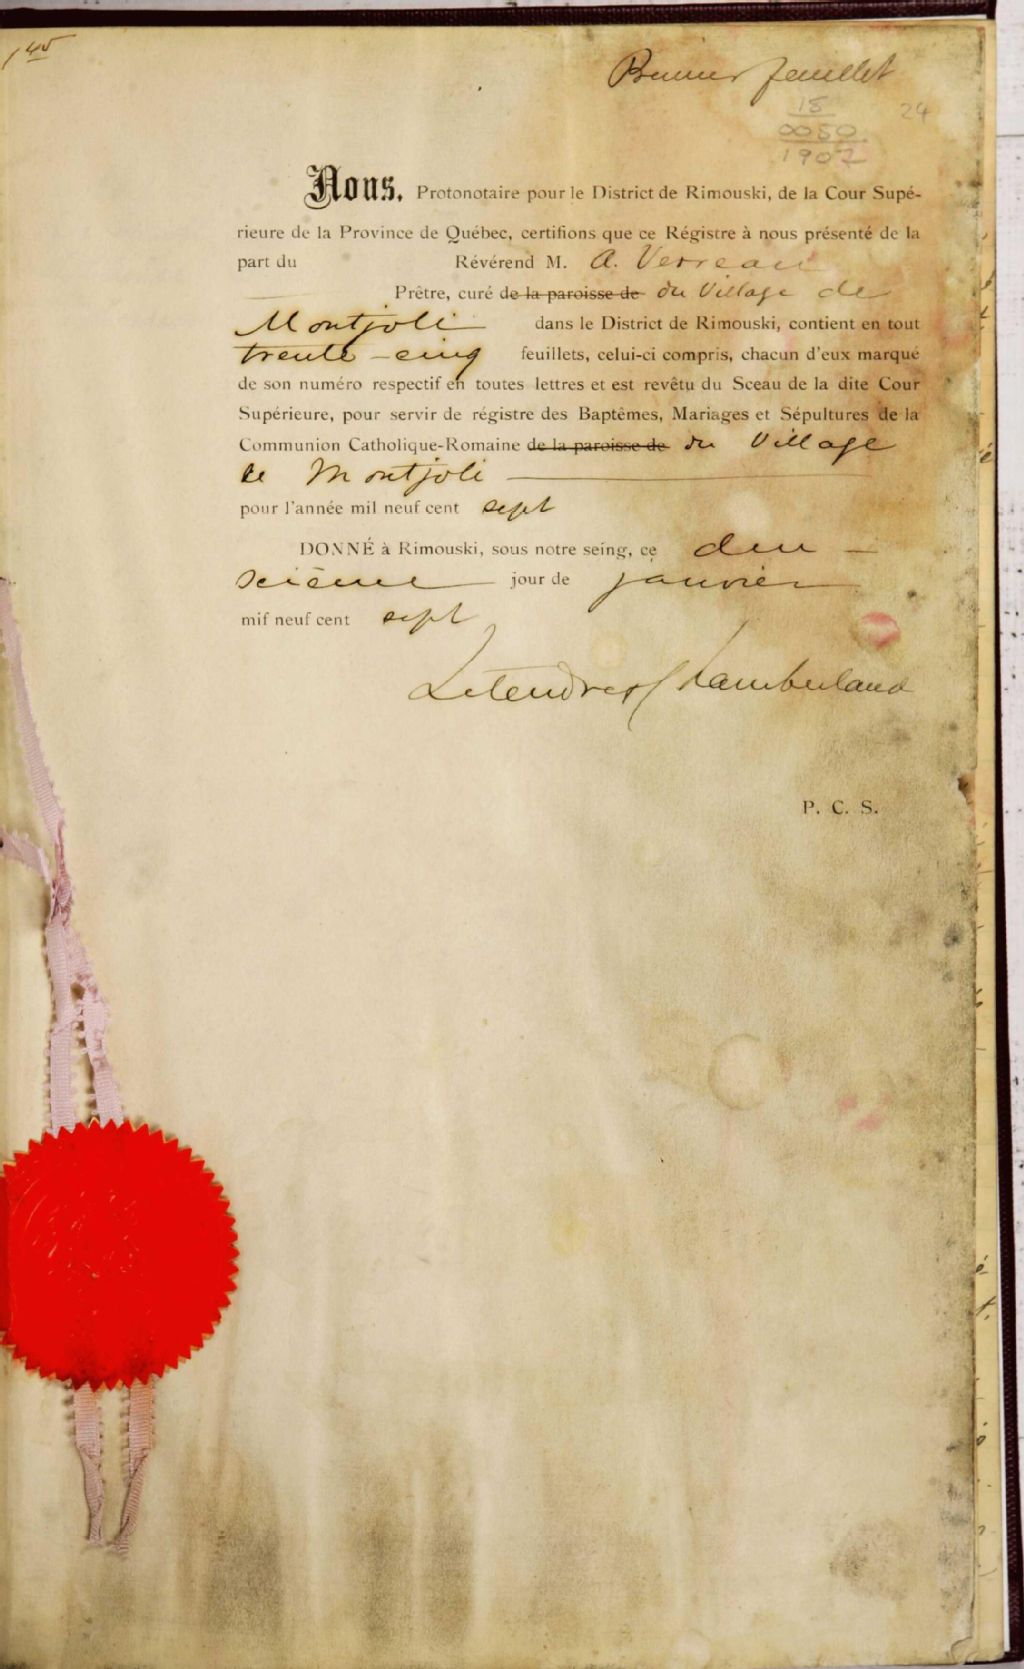 145
Premier feuillet
15
0050
1907
24
Nous, Protonotaire pour le District de Rimouski, de la Cour Supé-
rieure de la Province de Québec, certifions que ce Régistre à nous présenté de la
part du Révérend M. A. Verreau
Prêtre, curé de la paroisse de du Village de
Montjoli dans le District de Rimouski, contient en tout
trente-cinq feuillets, celui-ci compris, chacun d'eux marqué
de son numéro respectif en toutes lettres et est revêtu du Sceau de la dite Cour
Supérieure, pour servir de régistre des Baptêmes, Mariages et Sépultures de la
Communion Catholique-Romaine de la paroisse de du Village
de Montjoli
pour l'année mil neuf cent sept
DONNÉ à Rimouski, sous notre seing, ce deu
xième jour de janvier
mil neuf cent sept
Letendre & Chamberland
P. C. S.